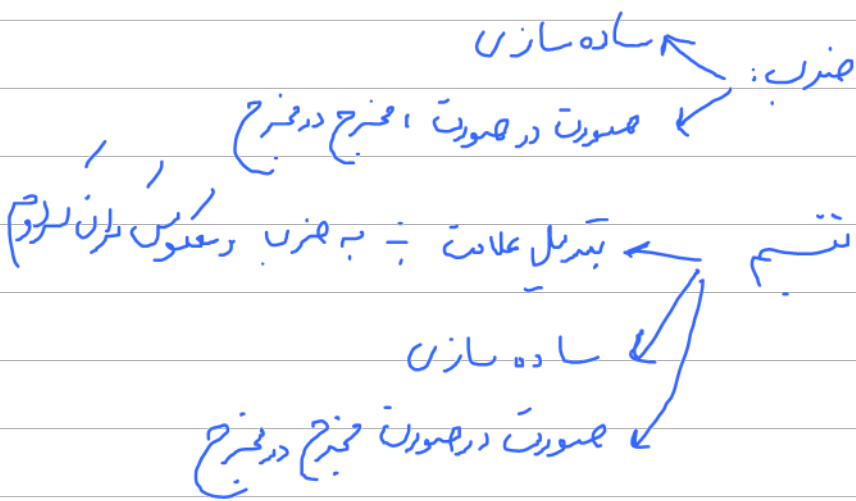 ضرب: ساده سازی
صورت در صورت، مخرج در مخرج
تقسیم تبدیل علامت ÷ به ضرب و معکوس کردن کسر دوم
ساده سازی
صورت در صورت مخرج در مخرج